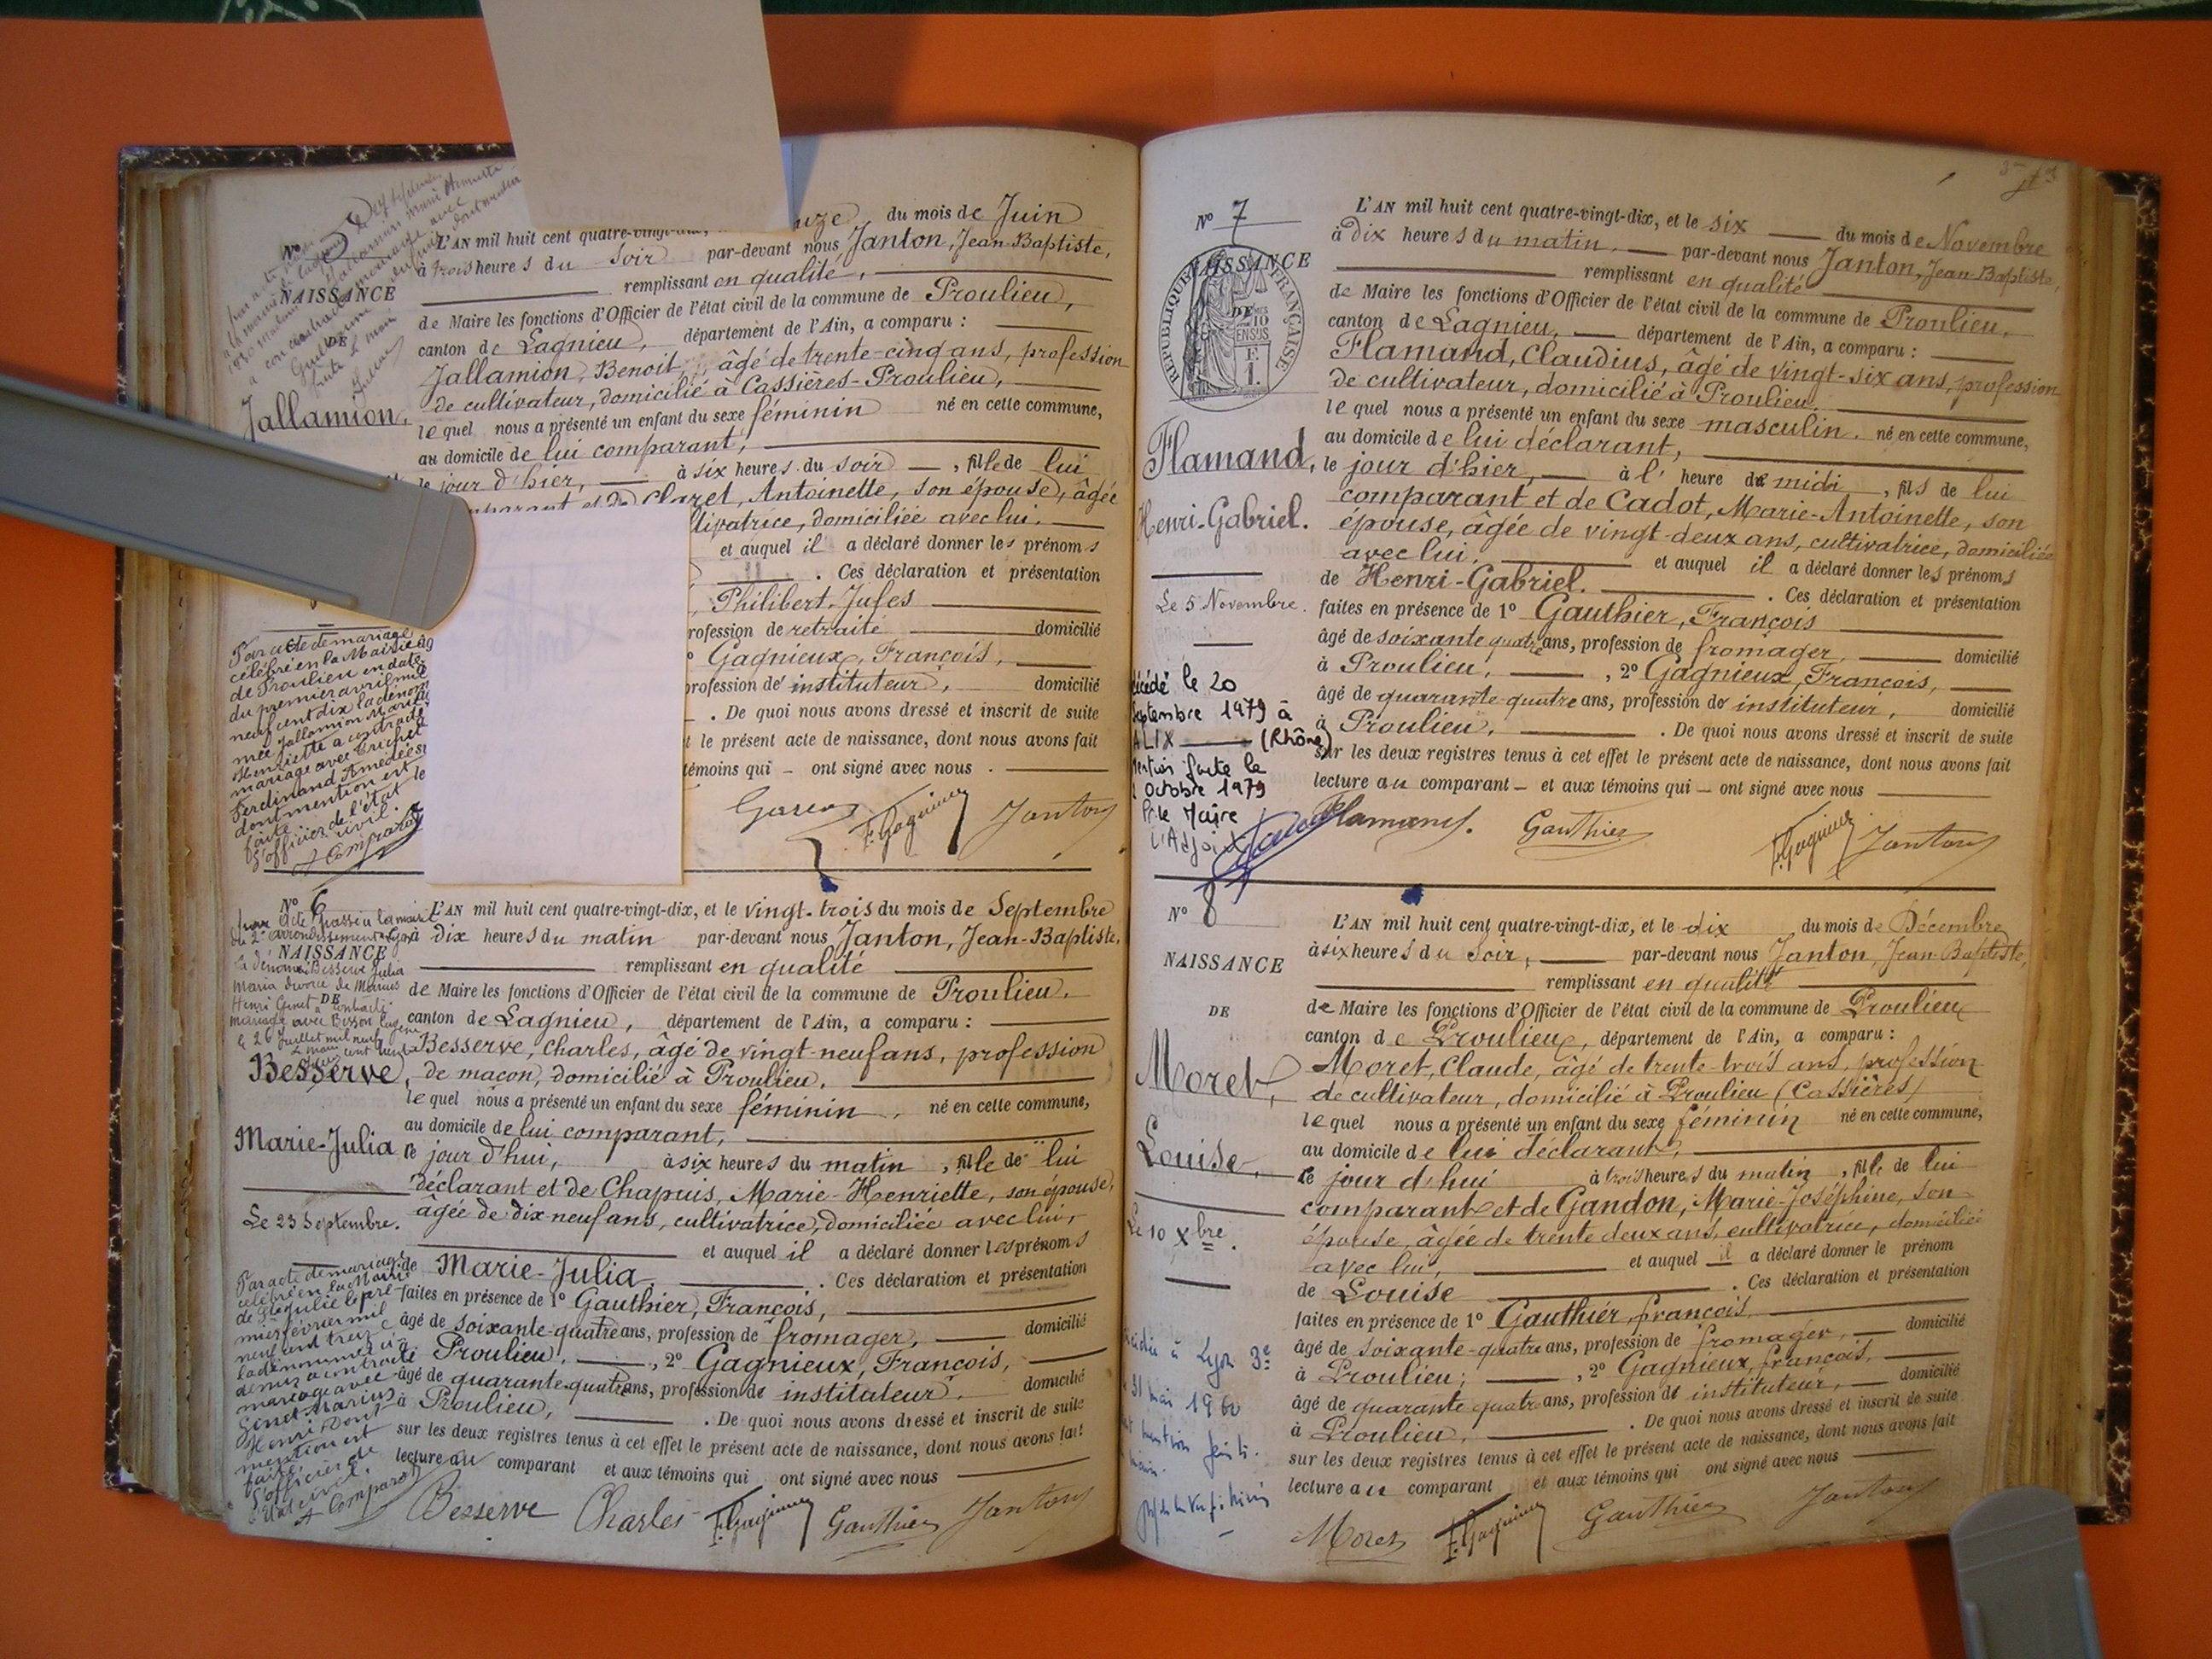 uze du mois de Juin
L'AN mil huit cent
à trois heures du soir par-devant nous Janton, Jean-Baptiste,
remplissant en qualité,
de Maire les fonctions d'Officier de l'état civil de la commune de Proulieu,
canton de Lagnieu, département de l'Ain, a comparu :
Jallamion, Benoit, âgé de trente-cinq ans, profession
de cultivateur, domicilié à Cassières-Proulieu,
le quel nous a présenté un enfant du sexe féminin né en cette commune,
au domicile de lui comparant,
le jour d'hier, à six heures du soir, fille de lui
comparant et de Clazet, Antoinette, son épouse, âgée
ltivatrice, domiciliée avec lui.
et auquel il a déclaré donner les prénoms
. Ces déclaration et présentation
, Philibert-Jules
rofession de retraité domicilié
Gagnieux, François,
profession de instituteur, domicilié
. De quoi nous avons dressé et inscrit de suite
t le présent acte de naissance, dont nous avons fait
témoins qui – ont signé avec nous.
F. Gagnieux Janton
N°
NAISSANCE
DE
Jallamion,
Par acte de mariage
célébré en la Mairie
de Proulieu en date
du premier avril mil
neuf cent dix la dénom
mée Jallamion Marie
Henriette a contracté
mariage avec
Ferdinand Amédée
dont mention est
faite.
L'officier de l'état
civil.
N° 6
NAISSANCE
DE
Besserve,
Marie-Julia
Le 23 Septembre.
L'AN mil huit cent quatre-vingt-dix, et le vingt-trois du mois de Septembre
à dix heures du matin par-devant nous Janton, Jean-Baptiste,
remplissant en qualité
de Maire les fonctions d'Officier de l'état civil de la commune de Proulieu.
canton de Lagnieu, département de l'Ain, a comparu :
Besserve, Charles, âgé de vingt-neuf ans, profession
de maçon, domicilié à Proulieu,
le quel nous a présenté un enfant du sexe féminin, né en cette commune,
au domicile de lui comparant,
ce jour d'hui, à six heures du matin, fille de lui
déclarant et de Chapuis, Marie-Henriette, son épouse,
âgée de dix neuf ans, cultivatrice, domiciliée avec lui,
et auquel il a déclaré donner les prénoms
de Marie-Julia. . Ces déclaration et présentation
faites en présence de 1° Gauthier, François,
âgé de soixante-quatre ans, profession de fromager, domicilié
à Proulieu, , 2° Gagnieux, François,
âgé de quarante-quatre ans, profession de instituteur, domicilié
à Proulieu, . De quoi nous avons dressé et inscrit de suite
sur les deux registres tenus à cet effet le présent acte de naissance, dont nous avons fait
lecture au comparant et aux témoins qui ont signé avec nous
Besserve Charles F. Gagnieux Gauthier Janton
Par acte de mariage
célébré en la Mairie
de Ste Julie le pre-
mier février mil
neuf cent treize
la dénommée ci
dessus a contracté
mariage avec
Genet Marius
Henri dont
mention est
faite.
L'officier de
l'état civil.
N° 7
NAISSANCE
RÉPUBLIQUE FRANÇAISE
2/10 EN SUS
Flamand,
Henri-Gabriel.
Le 5 Novembre.
écédé le 20
Septembre 1979 à
ALIX (Rhône)
Mention faite le
Octobre 1979
P. le Maire
L'Adjoint
L'AN mil huit cent quatre-vingt-dix, et le six du mois de Novembre
à dix heures du matin, par-devant nous Janton, Jean-Baptiste,
remplissant en qualité
de Maire les fonctions d'Officier de l'état civil de la commune de Proulieu,
canton de Lagnieu, département de l'Ain, a comparu :
Flamand, Claudius, âgé de vingt-six ans, profession
de cultivateur, domicilié à Proulieu,
le quel nous a présenté un enfant du sexe masculin, né en cette commune,
au domicile de lui déclarant,
le jour d'hier, à l' heure de midi, fils de lui
comparant et de Cadot, Marie-Antoinette, son
épouse, âgée de vingt-deux ans, cultivatrice, domiciliée
avec lui, et auquel il a déclaré donner les prénoms
de Henri-Gabriel. . Ces déclaration et présentation
faites en présence de 1° Gauthier, François
âgé de soixante quatre ans, profession de fromager, domicilié
à Proulieu, , 2° Gagnieux, François,
âgé de quarante-quatre ans, profession de instituteur, domicilié
à Proulieu, . De quoi nous avons dressé et inscrit de suite
sur les deux registres tenus à cet effet le présent acte de naissance, dont nous avons fait
lecture au comparant – et aux témoins qui – ont signé avec nous
Flamand. Gauthier F. Gagnieux Janton
N° 8
NAISSANCE
DE
Moret,
Louise,
Le 10 Xbre.
à Lyon 3e
31 mai 1960
L'AN mil huit cent quatre-vingt-dix, et le dix du mois de Décembre
à six heures du soir, par-devant nous Janton, Jean-Baptiste,
remplissant en qualité
de Maire les fonctions d'Officier de l'état civil de la commune de Proulieu
canton de Proulieu, département de l'Ain, a comparu :
Moret, Claude, âgé de trente-trois ans, profession
de cultivateur, domicilié à Proulieu (Cassières)
le quel nous a présenté un enfant du sexe féminin né en cette commune,
au domicile de lui déclarant,
ce jour d'hui à trois heures du matin, fille de lui
comparant et de Gandon, Marie-Joséphine, son
épouse, âgée de trente deux ans, cultivatrice, domiciliée
avec lui, et auquel il a déclaré donner le prénom
de Louise . Ces déclaration et présentation
faites en présence de 1° Gauthier, françois,
âgé de soixante-quatre ans, profession de fromager, domicilié
à Proulieu; , 2° Gagnieux, françois,
âgé de quarante quatre ans, profession de instituteur, domicilié
à Proulieu, . De quoi nous avons dressé et inscrit de suite
sur les deux registres tenus à cet effet le présent acte de naissance, dont nous avons fait
lecture au comparant et aux témoins qui ont signé avec nous
Moret F. Gagnieux Gauthier Janton